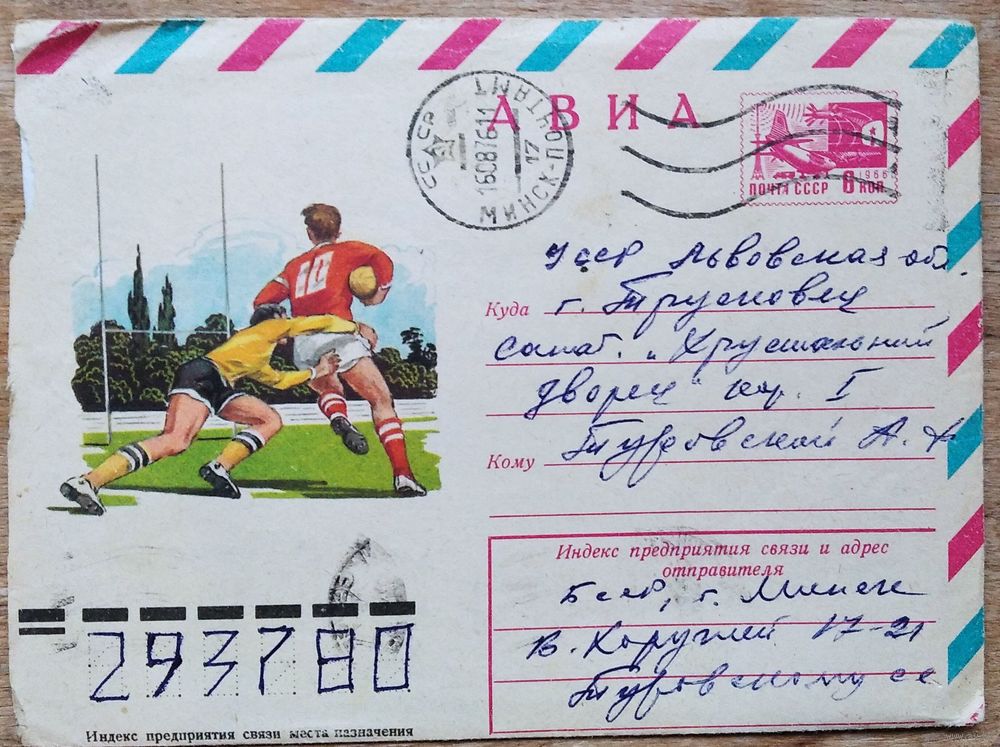 АВИА
СССР
16087611
МИНСК-ПОЧТАМТ
17
1966
ПОЧТА СССР 6 КОП
10
УССР Львовская обл.
Куда г. Трусковец
санат. „Хрустальный
дворец" кор. I
Кому Туровской А. Ф
Индекс предприятия связи и адрес
отправителя
БССР, г. Минск
В. Хоружей 17-21
Туровскому
293780
Индекс предприятия связи места назначения